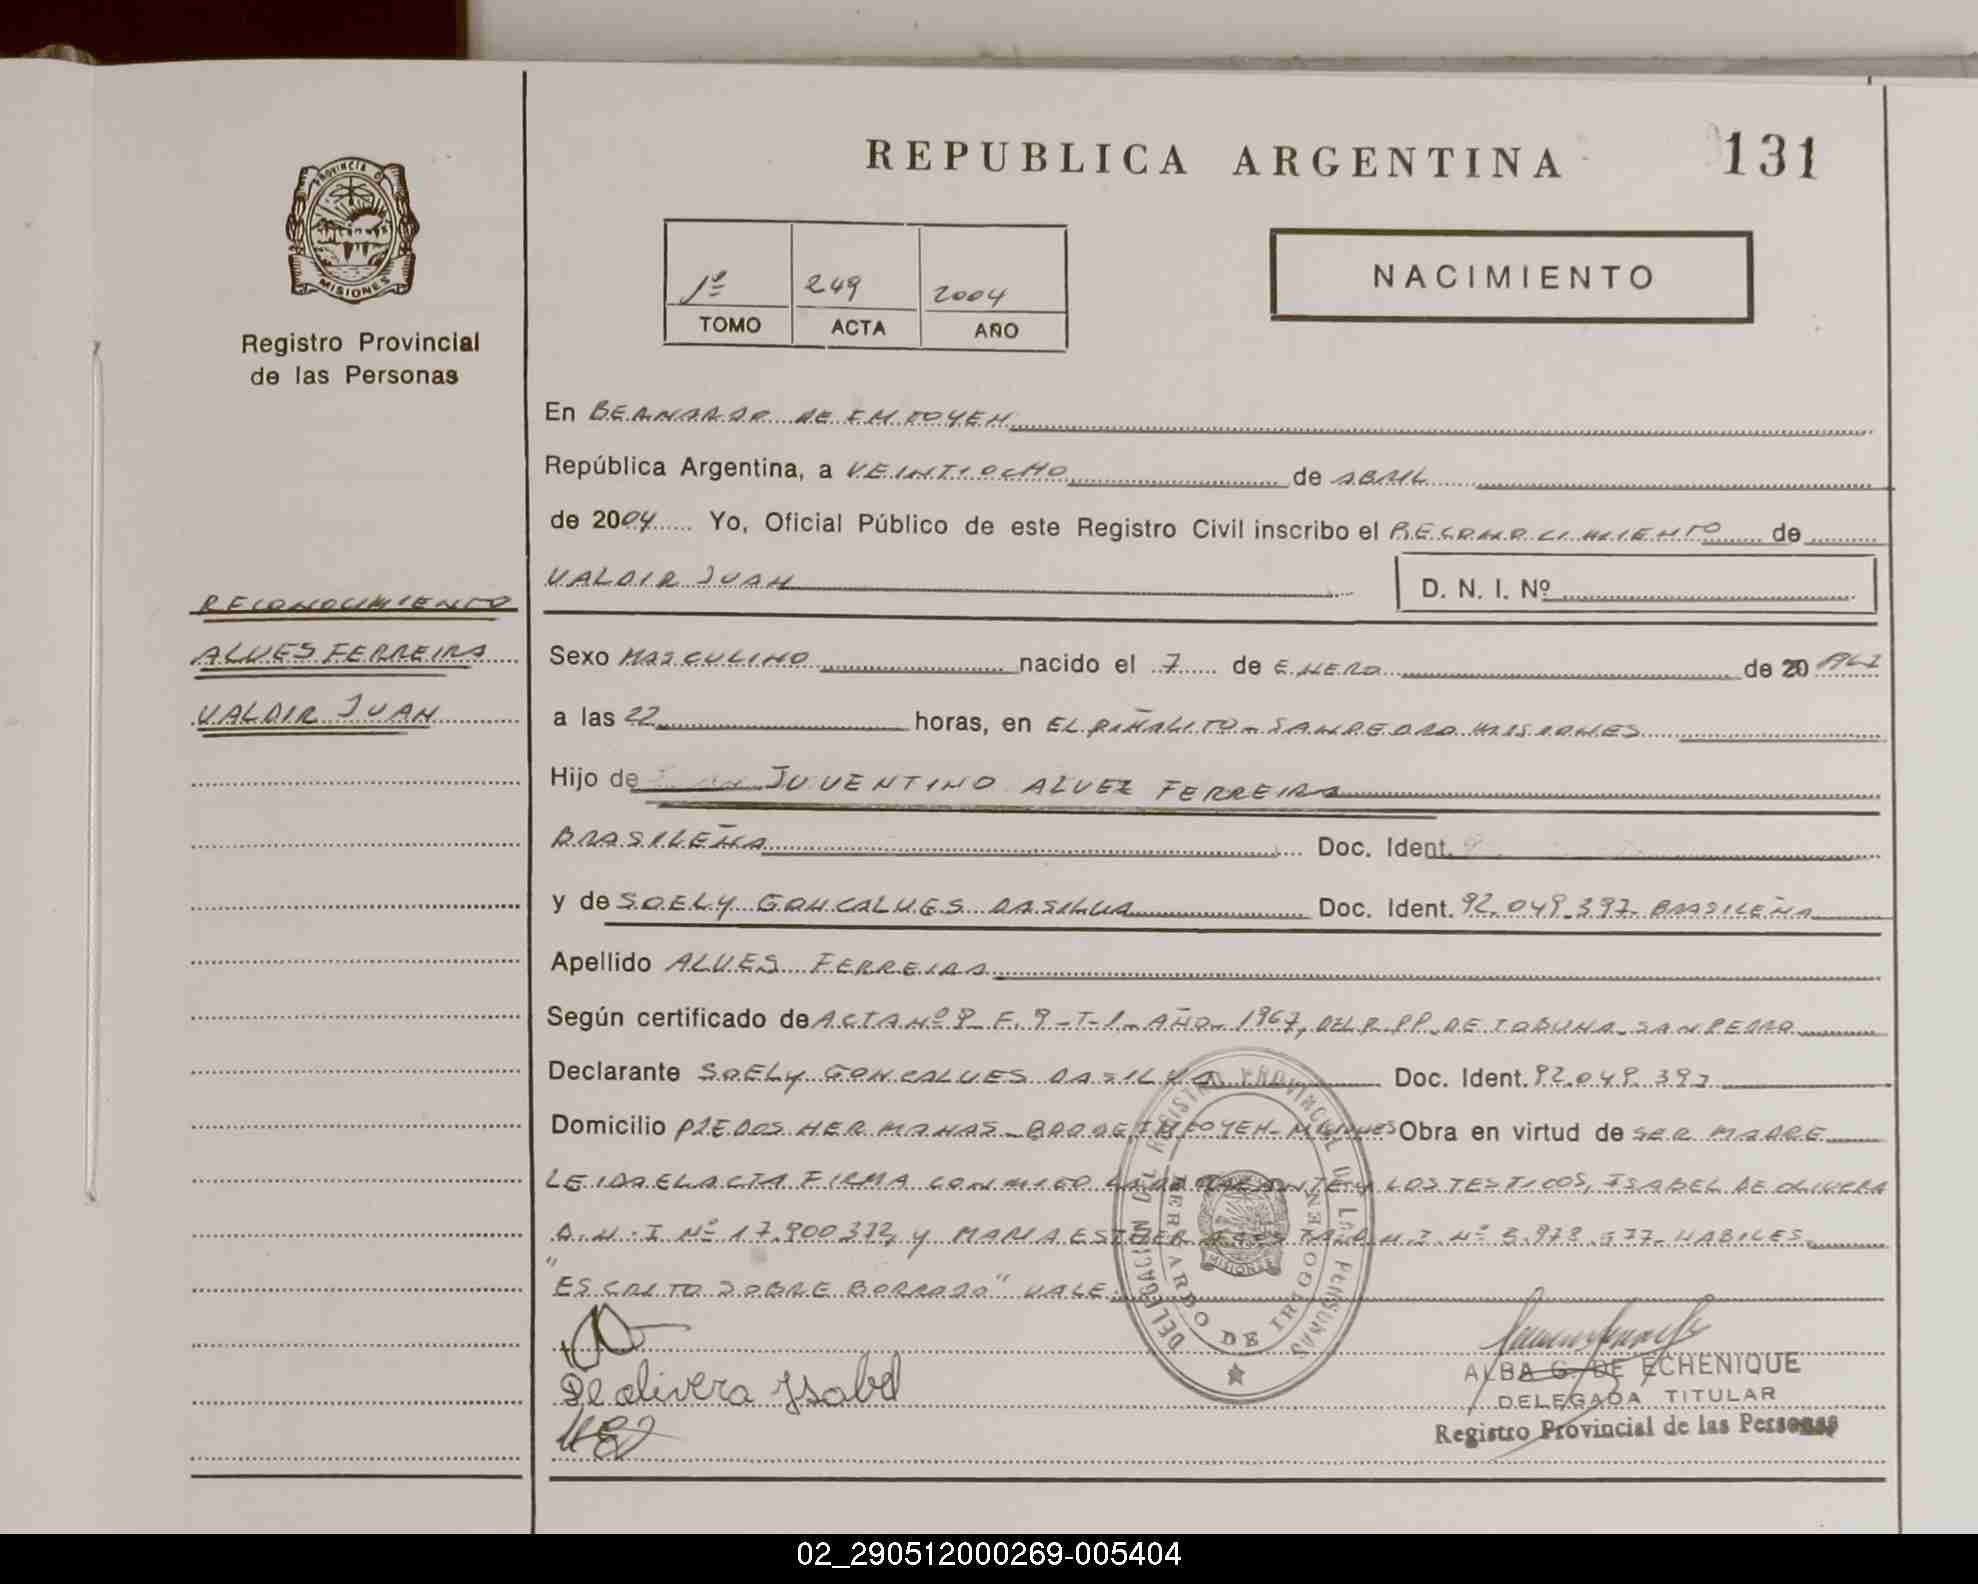 REPUBLICA ARGENTINA
131
PROVINCIA D
MISIONES
Registro Provincial
de las Personas
1º 249 2004
TOMO ACTA AÑO
NACIMIENTO
En BERNARDO DE IRIGOYEN
República Argentina, a VEINTIOCHO de ABRIL
de 2004 Yo, Oficial Público de este Registro Civil inscribo el RECONOCIMIENTO de
VALDIR JUAN D. N. I. Nº
RECONOCIMIENTO
ALVES FERREIRA
VALDIR JUAN
Sexo MASCULINO nacido el 7 de ENERO de 20 1967
a las 22 horas, en EL PIÑALITO - SAN PEDRO MISIONES
Hijo de JUVENTINO ALVEZ FERREIRA
BRASILEÑA Doc. Ident.
y de SOELY GONCALVES DASILVA Doc. Ident. 92.049.397 BRASILEÑA
Apellido ALVES FERREIRA
Según certificado de ACTA Nº 9 F. 9 - T-1 - AÑO - 1967, DEL R.PP. DE TOBUNA - SAN PEDRO
Declarante SOELY GONCALVES DASILVA Doc. Ident. 92.049.397
Domicilio PJE DOS HERMANAS - BDO DE IRIGOYEN - MISIONES Obra en virtud de SER MADRE
LEIDA EL ACTA FIRMA CONMIGO LA DECLARANTE Y LOS TESTIGOS, ISABEL DE OLIVERA
D.N.I Nº 17.900.372 y MARIA ESTHER D.N.I. Nº 5.978.577 HABILES.
"ESCRITO SOBRE BORRADO" VALE.
DELEGACION DEL REGISTRO PROVINCIAL DE LAS PERSONAS
BERNARDO DE IRIGOYEN
MISIONES
De olivera Ysabel
ALBA G. DE ECHENIQUE
DELEGADA TITULAR
Registro Provincial de las Personas
02_290512000269-005404